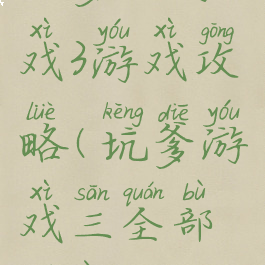 xì yóu xì gōng
戏3游戏攻
lüè kēng diē yóu
略(坑爹游
xì sān quán bù
戏三全部